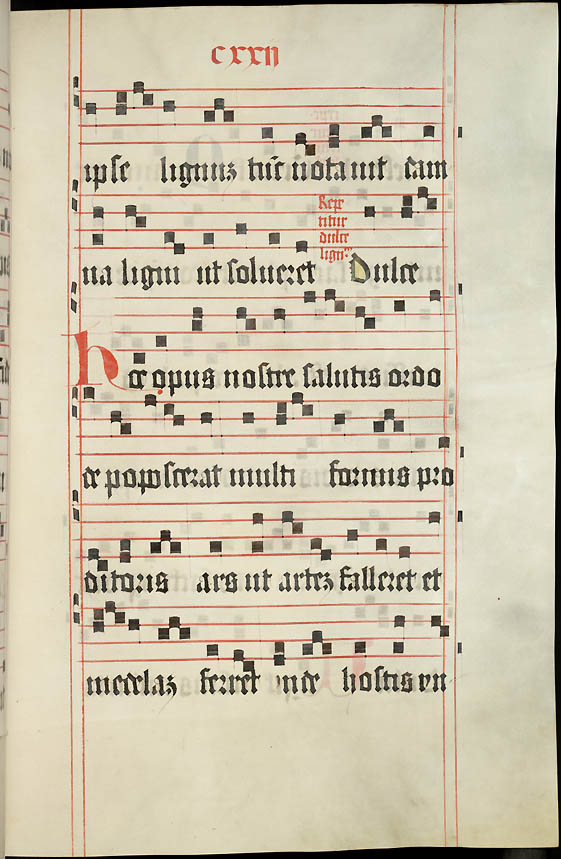 cxxii
ipse lignuz tu͞c notauit dam
na ligni ut solueret Dulce
Repe
titur
dulce
lignu͞
hoc opus nostre salutis ordo
de poposcerat multi formis pro
ditoris ars ut artez falleret et
medelaz ferret vnde hostis vn